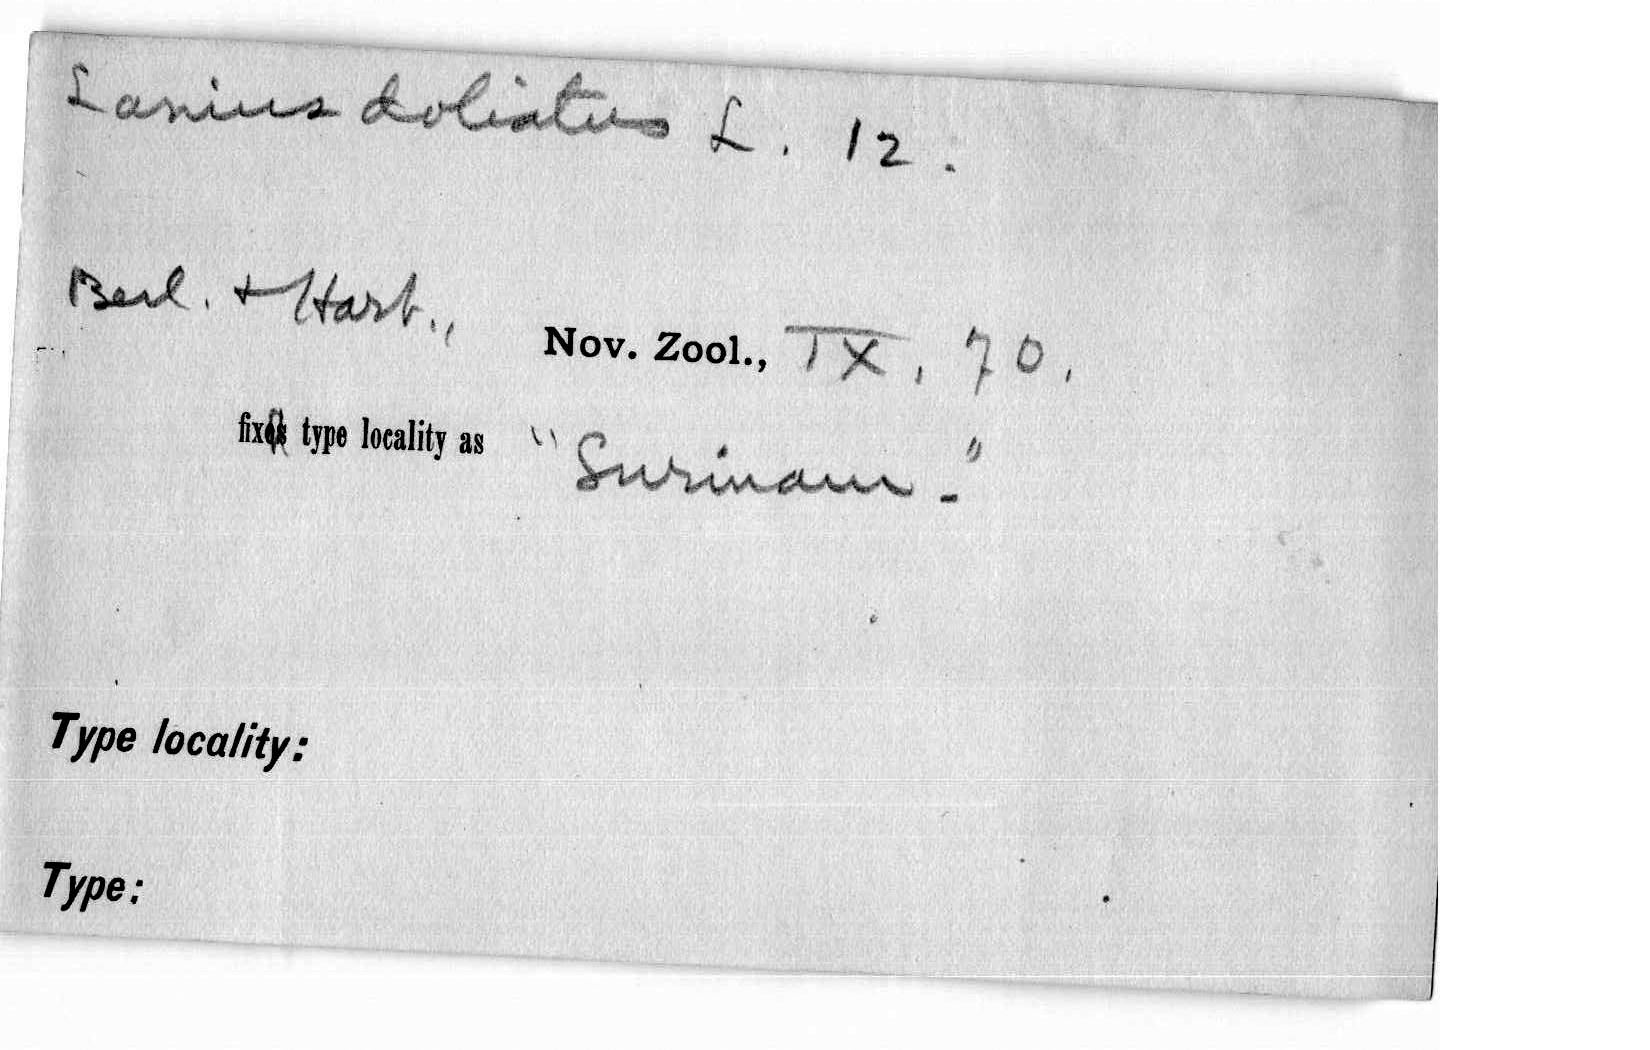 Lanius doliatus L. 12.
Berl. + Hart., Nov. Zool., IX, 70.
fix type locality as "Surinam."
Type locality:
Type: